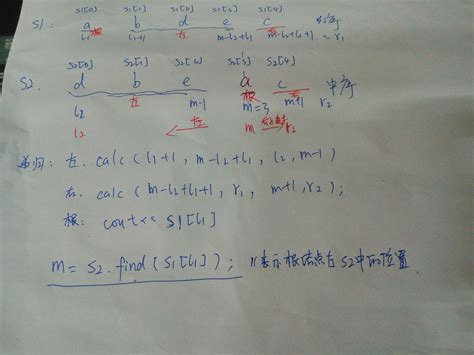 S1[0] S1[1] S1[2] S1[3] S1[4]
S1: a b d e c
l1 l1+1 左 m-l2+l1 m-l2+l1+1 ~ r1
S2[0] S2[1] S2[2] S2[3] S2[4]
S2. d b e a c 中序
左 根 右
l2 m-1 m=3 m+1 r2
l2 左 m r2
递归: 左. calc(l1+1, m-l2+l1, l2, m-1)
右. calc(m-l2+l1+1, r1, m+1, r2);
根: cout<< S1[l1]
m= S2.find(S1[l1]); //表示根结点在S2中的位置.